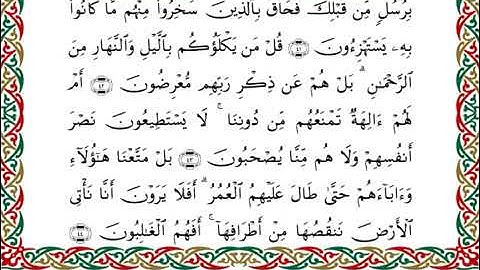 بِرُسُلٍ مِّن قَبْلِكَ فَحَاقَ بِالَّذِينَ سَخِرُوا۟ مِنْهُم مَّا كَانُوا۟
بِهِۦ يَسْتَهْزِءُونَ ٤١ قُلْ مَن يَكْلَؤُكُم بِالَّيْلِ وَالنَّهَارِ مِنَ
الرَّحْمَٰنِ ۗ بَلْ هُمْ عَن ذِكْرِ رَبِّهِم مُّعْرِضُونَ ٤٢ أَمْ
لَهُمْ ءَالِهَةٌ تَمْنَعُهُم مِّن دُونِنَا ۚ لَا يَسْتَطِيعُونَ نَصْرَ
أَنفُسِهِمْ وَلَا هُم مِّنَّا يُصْحَبُونَ ٤٣ بَلْ مَتَّعْنَا هَٰٓؤُلَآءِ
وَءَابَآءَهُمْ حَتَّىٰ طَالَ عَلَيْهِمُ الْعُمُرُ ۗ أَفَلَا يَرَوْنَ أَنَّا نَأْتِى
الْأَرْضَ نَنقُصُهَا مِنْ أَطْرَافِهَآ ۚ أَفَهُمُ الْغَٰلِبُونَ ٤٤